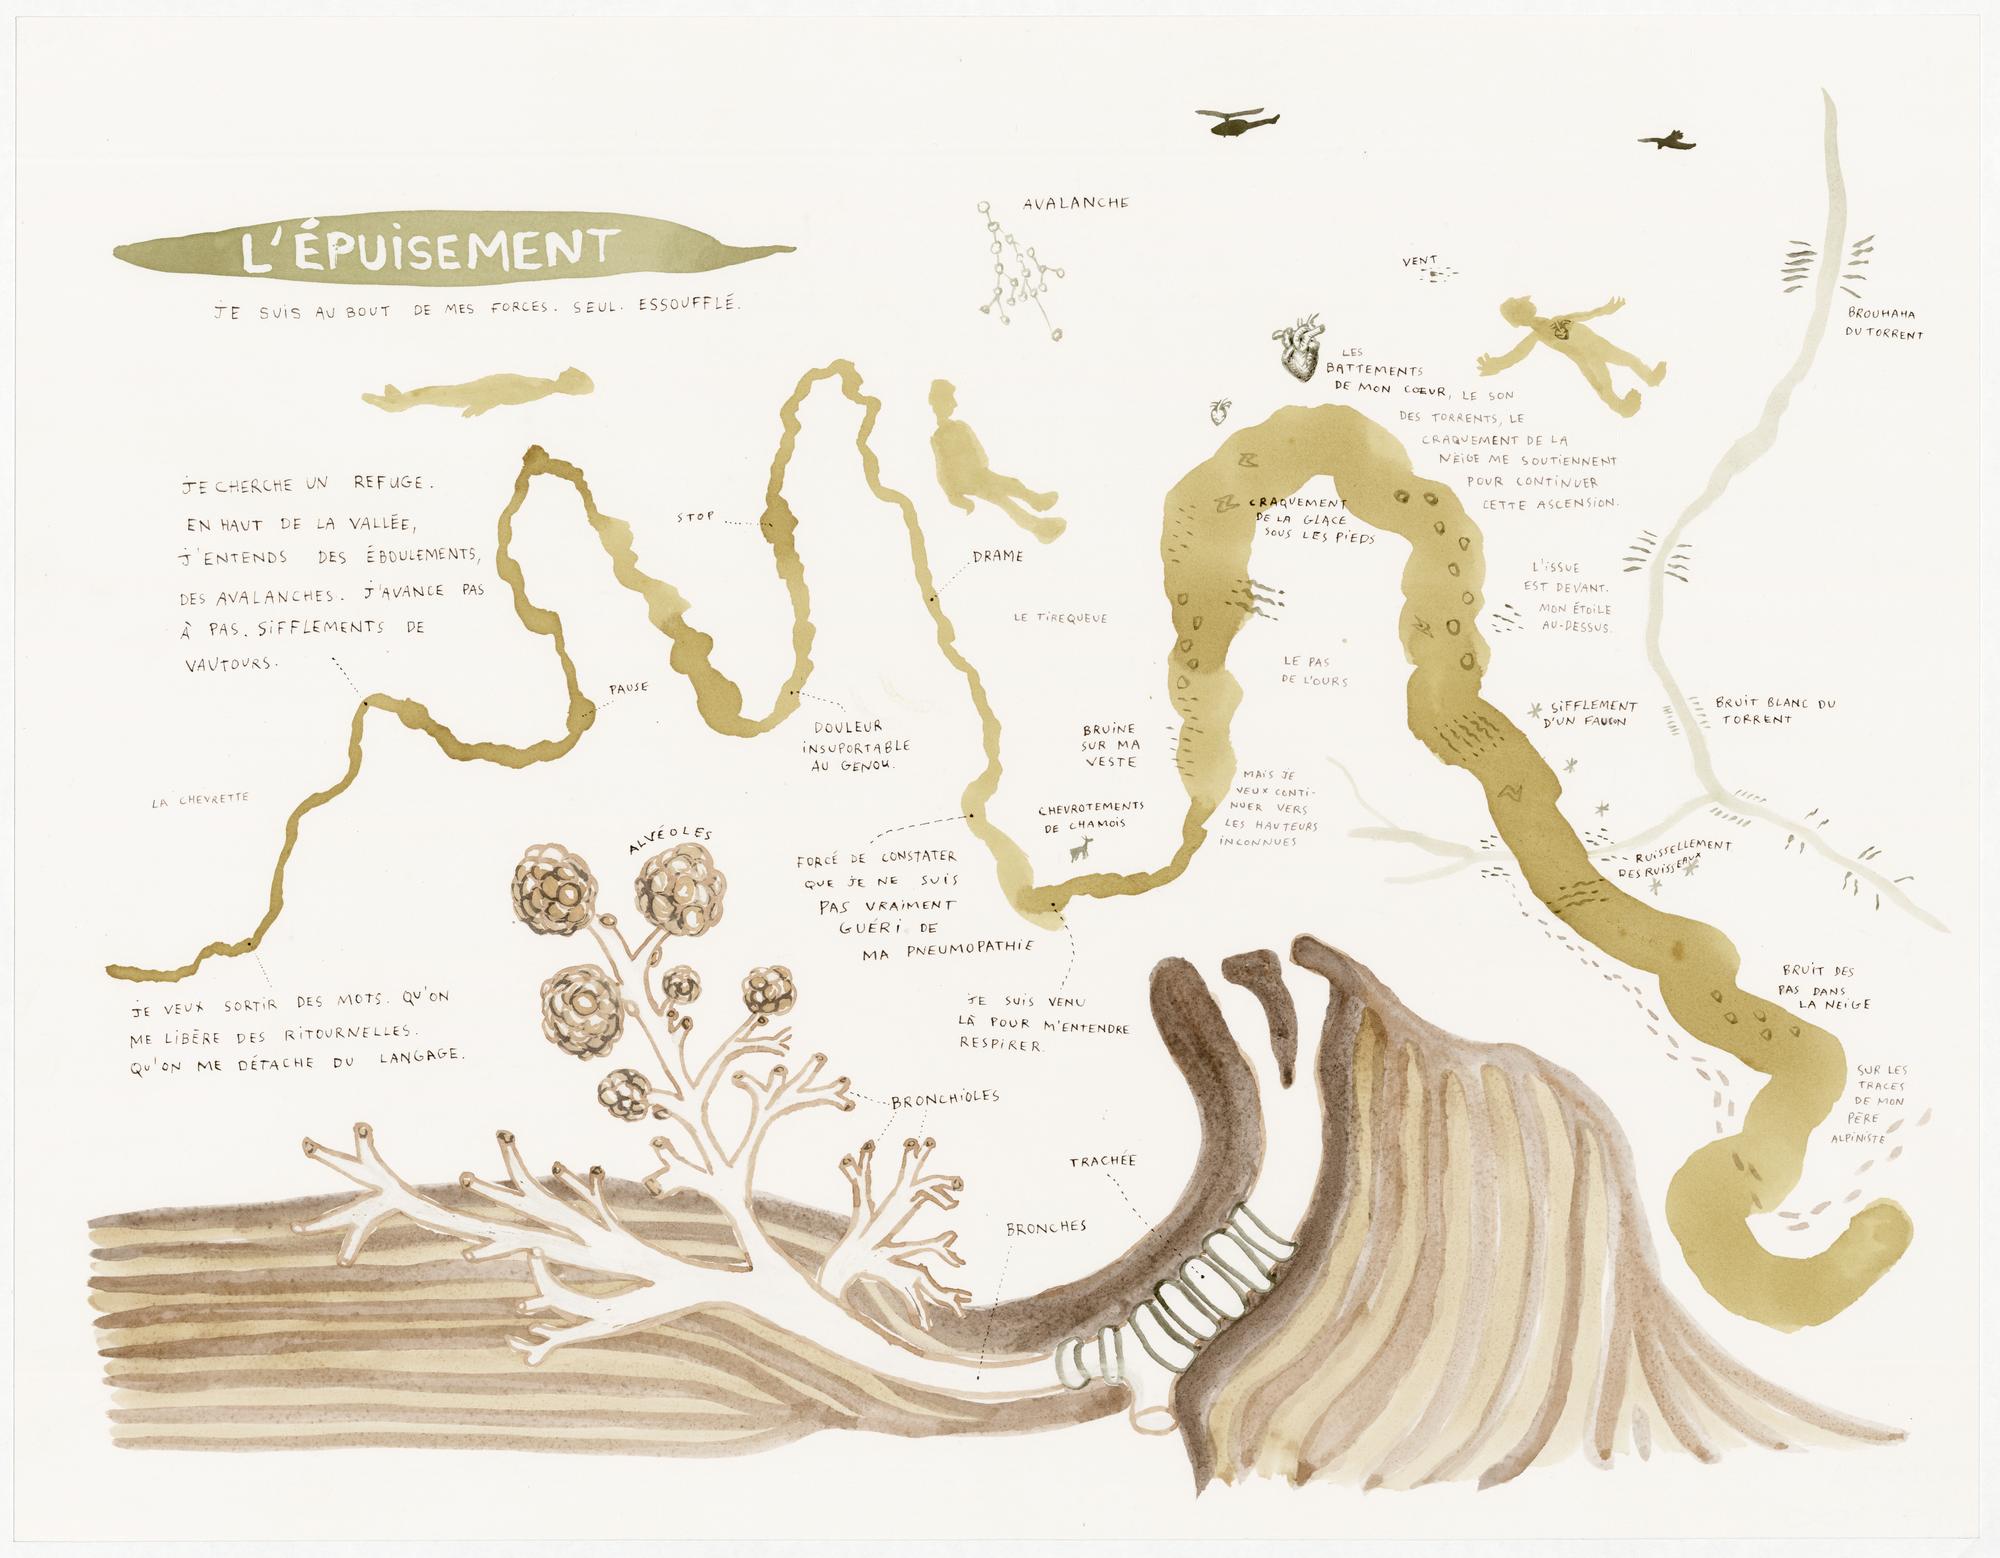 L'ÉPUISEMENT
JE SUIS AU BOUT DE MES FORCES. SEUL. ESSOUFFLÉ.
JE CHERCHE UN REFUGE.
EN HAUT DE LA VALLÉE,
J'ENTENDS DES ÉBOULEMENTS,
DES AVALANCHES. J'AVANCE PAS
À PAS. SIFFLEMENTS DE
VAUTOURS.
LA CHEVRETTE
JE VEUX SORTIR DES MOTS. QU'ON
ME LIBÈRE DES RITOURNELLES.
QU'ON ME DÉTACHE DU LANGAGE.
PAUSE
STOP
DOULEUR
INSUPORTABLE
AU GENOU.
AVALANCHE
DRAME
LE TIREQUEUE
FORCÉ DE CONSTATER
QUE JE NE SUIS
PAS VRAIMENT
GUÉRI DE
MA PNEUMOPATHIE
JE SUIS VENU
LÀ POUR M'ENTENDRE
RESPIRER.
CHEVROTEMENTS
DE CHAMOIS
BRUINE
SUR MA
VESTE
MAIS JE
VEUX CONTI-
NUER VERS
LES HAUTEURS
INCONNUES
LE PAS
DE L'OURS
CRAQUEMENT
DE LA GLACE
SOUS LES PIEDS
VENT
LES
BATTEMENTS
DE MON CŒUR, LE SON
DES TORRENTS, LE
CRAQUEMENT DE LA
NEIGE ME SOUTIENNENT
POUR CONTINUER
CETTE ASCENSION.
L'ISSUE
EST DEVANT.
MON ÉTOILE
AU-DESSUS.
BROUHAHA
DU TORRENT
SIFFLEMENT
D'UN FAUCON
BRUIT BLANC DU
TORRENT
RUISSELLEMENT
DES RUISSEAUX
BRUIT DES
PAS DANS
LA NEIGE
SUR LES
TRACES
DE MON
PÈRE
ALPINISTE
ALVÉOLES
BRONCHIOLES
TRACHÉE
BRONCHES